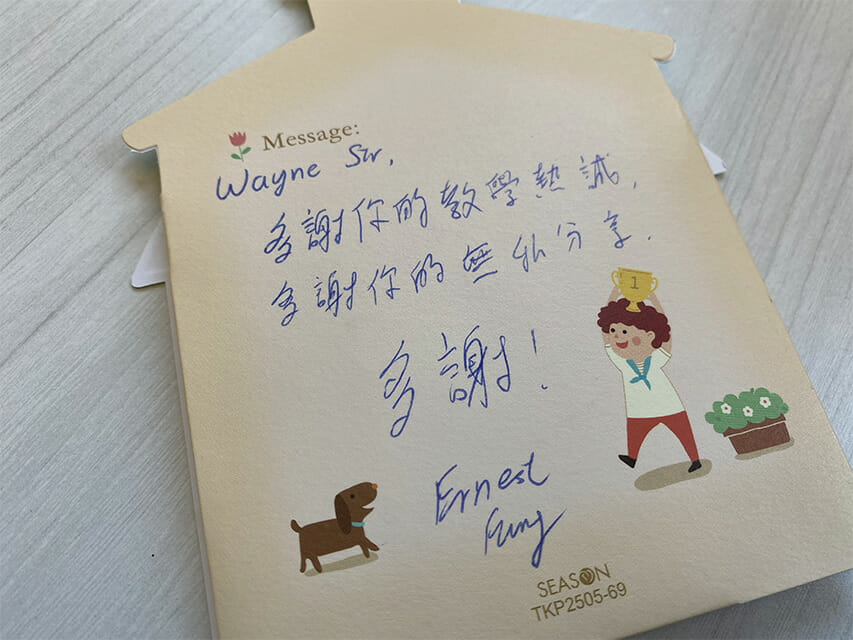 Message:
Wayne Sir,
多謝你的教學熱誠,
多謝你的無私分享.
多謝!
Ernest
Fung
1
SEASON
TKP2505-69